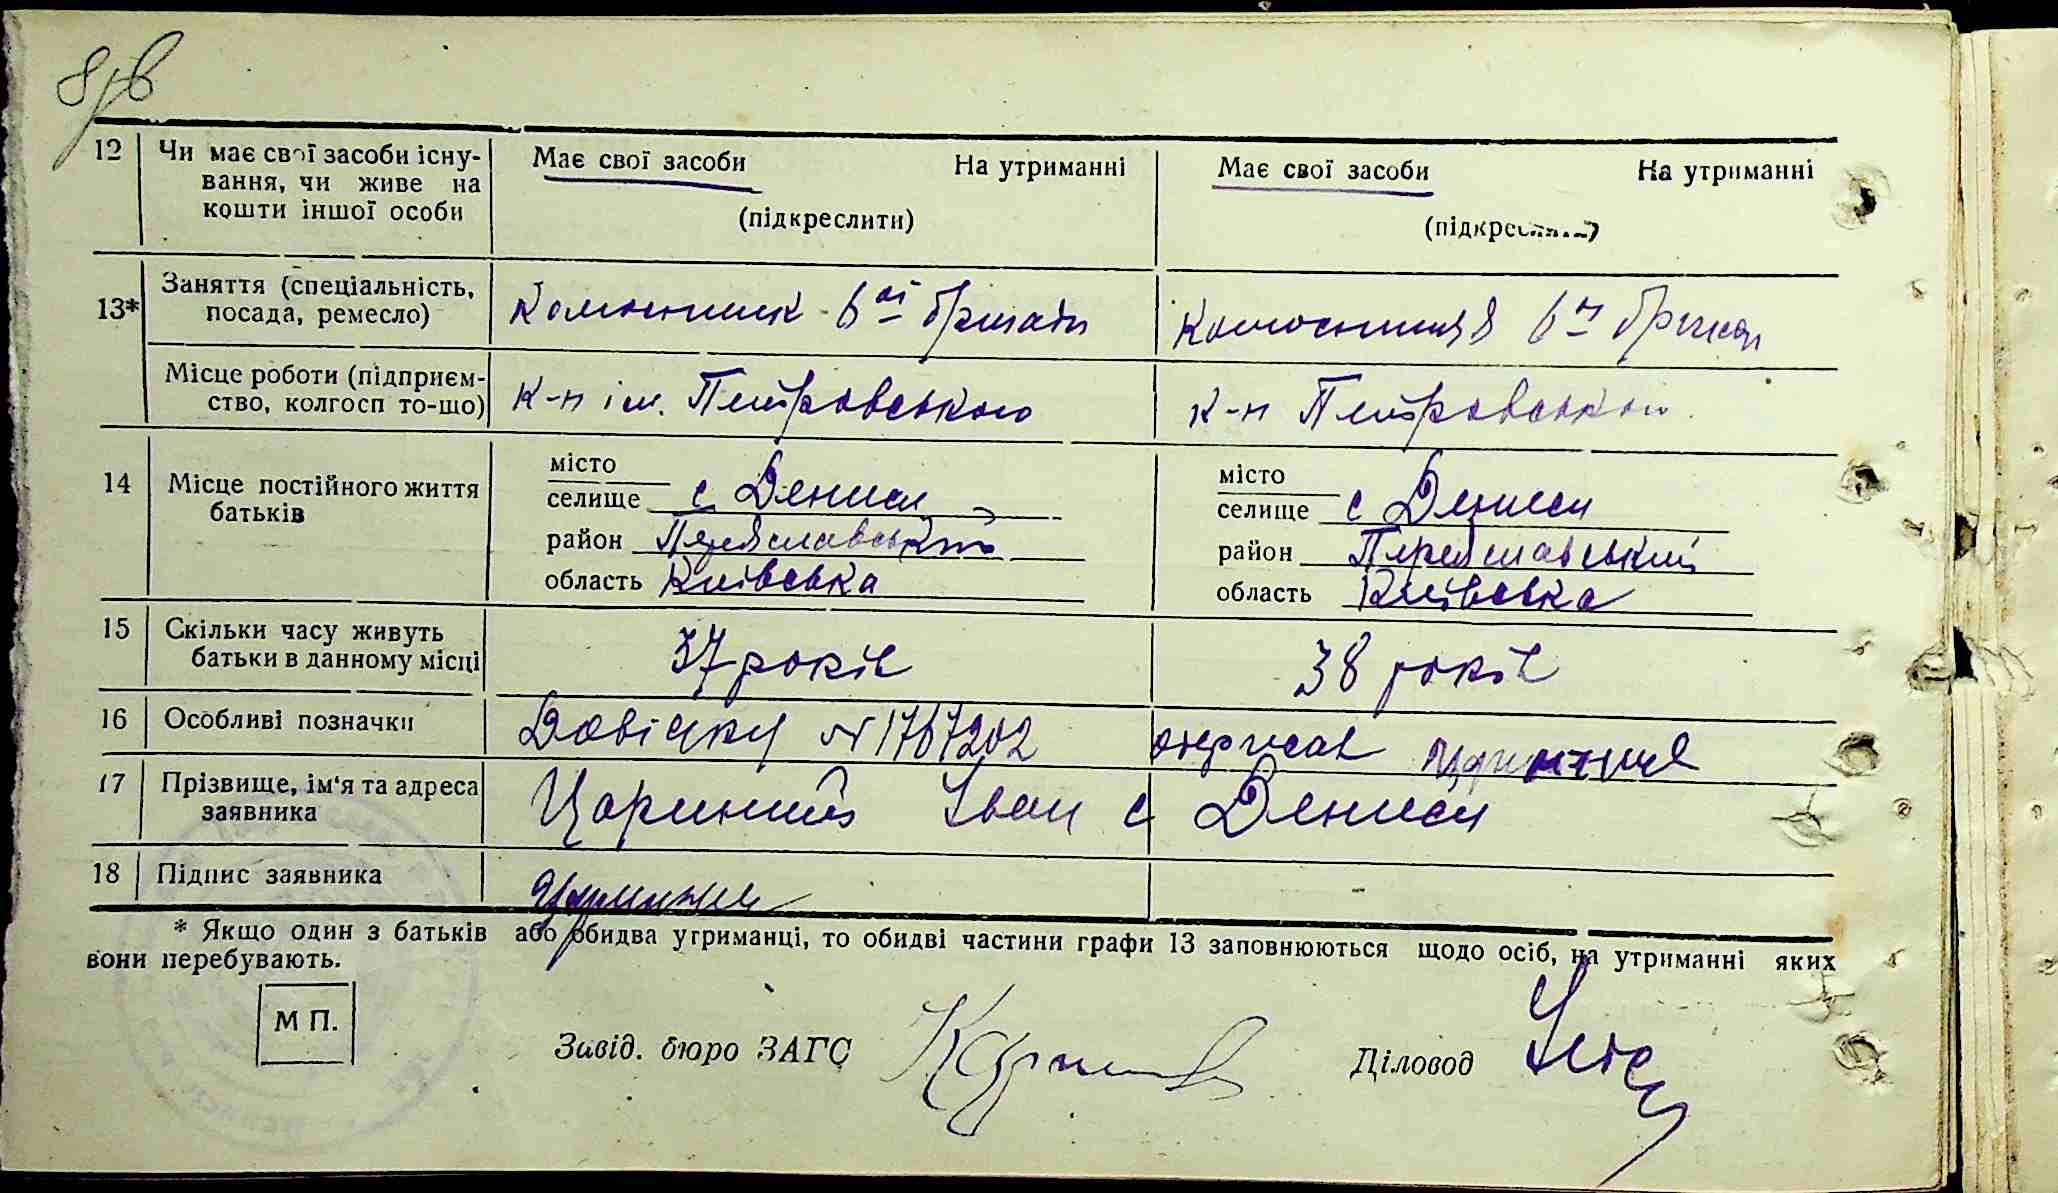 8/в
12 Чи має свої засоби існу-
вання, чи живе на
кошти іншої особи
Має свої засоби На утриманні
(підкреслити)
Має свої засоби На утриманні
(підкреслити)
13* Заняття (спеціальність,
посада, ремесло)
6 ої бригади
6
Місце роботи (підприєм-
ство, колгосп то-що)
к-п ім. Петровського
к-п Петровського
14 Місце постійного життя
батьків
місто
селище с Дениси
район Переяславський
область Київська
місто
селище с Дениси
район Переяславський
область Київська
15 Скільки часу живуть
батьки в данному місці
37 років
38 років
16 Особливі позначки
Довідку № 1767202 отримав
17 Прізвище, ім'я та адреса
заявника
Царинний Іван с Дениси
18 Підпис заявника
* Якщо один з батьків або обидва утриманці, то обидві частини графи 13 заповнюються щодо осіб, на утриманні яких
вони перебувають.
М П.
Завід. бюро ЗАГС
Діловод